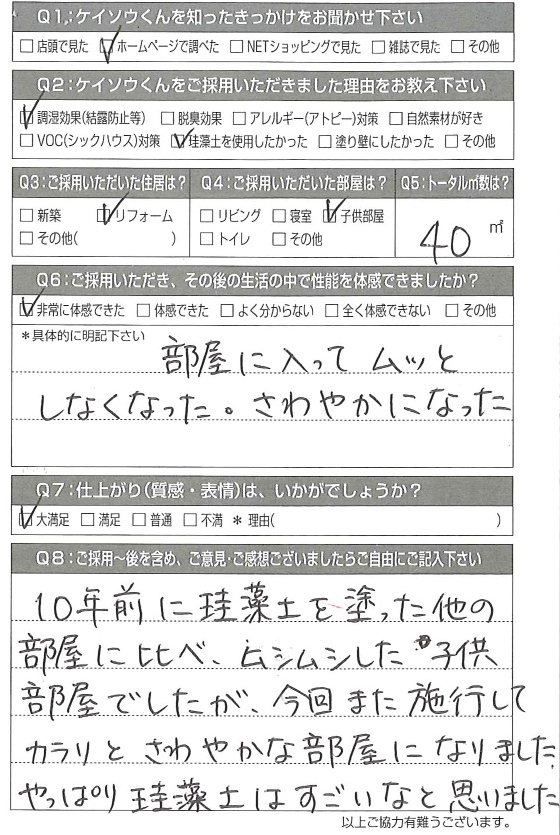 Q1:ケイソウくんを知ったきっかけをお聞かせ下さい
□店頭で見た ☑ホームページで調べた □NETショッピングで見た □雑誌で見た □その他
Q2:ケイソウくんをご採用いただきました理由をお教え下さい
☑調湿効果(結露防止等) □脱臭効果 □アレルギー(アトピー)対策 □自然素材が好き
□VOC(シックハウス)対策 ☑珪藻土を使用したかった □塗り壁にしたかった □その他
Q3:ご採用いただいた住居は? Q4:ご採用いただいた部屋は? Q5:トータル㎡数は?
□新築 ☑リフォーム □リビング □寝室 ☑子供部屋 40 ㎡
□その他( ) □トイレ □その他
Q6:ご採用いただき、その後の生活の中で性能を体感できましたか?
☑非常に体感できた □体感できた □よく分からない □全く体感できない □その他
*具体的に明記下さい
部屋に入って ムッと
しなくなった。さわやかになった
Q7:仕上がり(質感・表情)は、いかがでしょうか?
☑大満足 □満足 □普通 □不満 *理由( )
Q8:ご採用~後を含め、ご意見・ご感想ございましたらご自由にご記入下さい
10年前に珪藻土を塗った他の
部屋に比べ、ムシムシした 子供
部屋でしたが、今回また施行して
カラリと さわやかな部屋になりました。
やっぱり 珪藻土はすごいなと思いました
以上ご協力有難うございます。